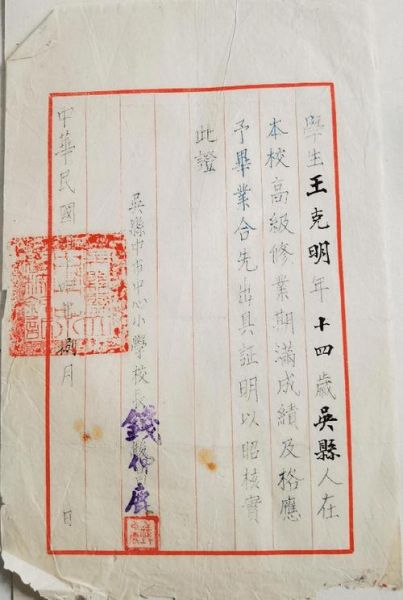 學生王克明年十四歲吳縣人在
本校高級修業期滿成績及格應
予畢業合先出具証明以昭核實
此證
吳縣中市中心小學校長錢
中華民國
捌月 日